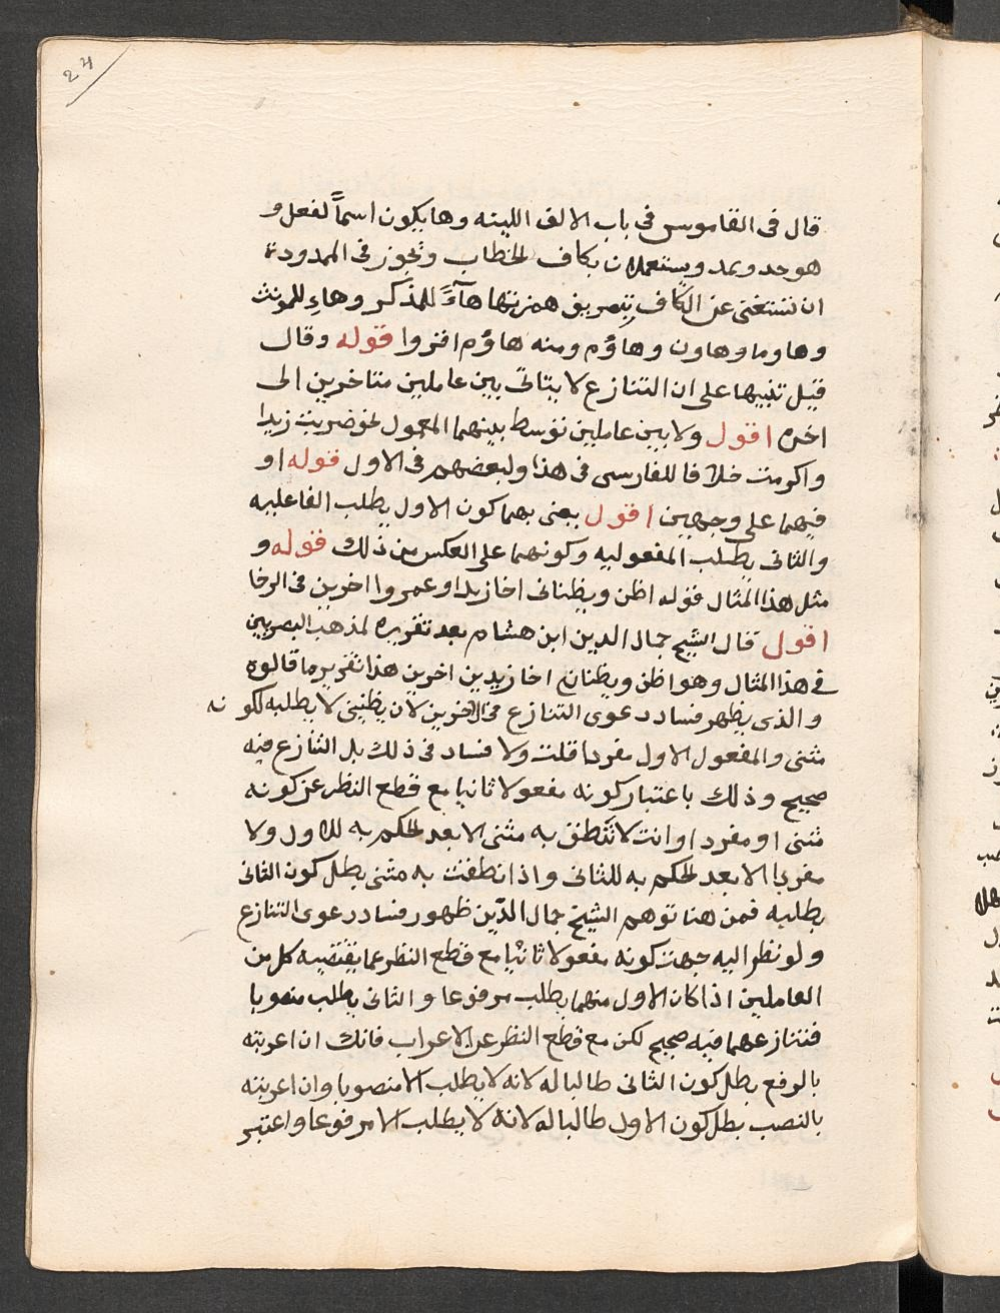 24
قال فى القاموس فى باب الالف اللينه وها يكون اسماً لفعل و
هو حد ويمد ويستعملان بكاف الخطاب وتجوز فى الممدودة
ان تستغنى عن الكاف بتصريف همزتها هآءَ للمذكر وهاءِ للمونث
وهاوما وهاون وهاؤم ومنه هاؤم اقروا قوله وقال
قيل تنبيها على ان التنازع لا يتاتى بين عاملين متاخرين الى
اخره اقول ولا بين عاملين توسط بينهما المعمول نحو ضربت زيدا
واكرمت خلافا للفارسى فى هذا ولبعضهم فى الاول قوله او
فيهما على وجهين اقول يعنى بهما كون الاول يطلب الفاعليه
والثانى يطلب المفعوليه وكونهما على العكس من ذلك قوله و
مثل هذا المثال قوله اظن ويظنانى اخا زيدا وعمروا اخوين فى الرخا
اقول قال الشيخ جمال الدين ابن هشام بعد تقريره لمذهب البصريين
فى هذا المثال وهو اظن ويظنانى اخا زيدين اخوين هذا تقرير ما قالوه
والذى يظهر فساد دعوى التنازع فى الاخوين لان يظننى لا يطلبه لكونه
مثنى والمفعول الاول مفردا قلت ولا فساد فى ذلك بل التنازع فيه
صحيح وذلك باعتبار كونه مفعولا ثانيا مع قطع النظر عن كونه
مثنى او مفردا وانت لا تنطق به مثنى الا بعد الحكم به للاول ولا
مفردا الا بعد الحكم به للثانى واذا نطقت به مثنى بطل كون الثانى
يطلبه فمن هنا توهم الشيخ جمال الدّين ظهور فساد دعوى التنازع
ولو نظر اليه جهت كونه مفعولا ثانيا مع قطع النظر عما يقتضيه كل من
العاملين اذا كان الاول منهما يطلب مرفوعا والثانى يطلب منصوبا
فتنازعهما فيه صحيح لكن مع قطع النظر عن الاعراب فانك ان اعربته
بالرفع بطل كون الثانى طالبا له لانه لا يطلب الا منصوبا وان اعربته
بالنصب بطل كون الاول طالبا له لانه لا يطلب الا مرفوعا واعتبر